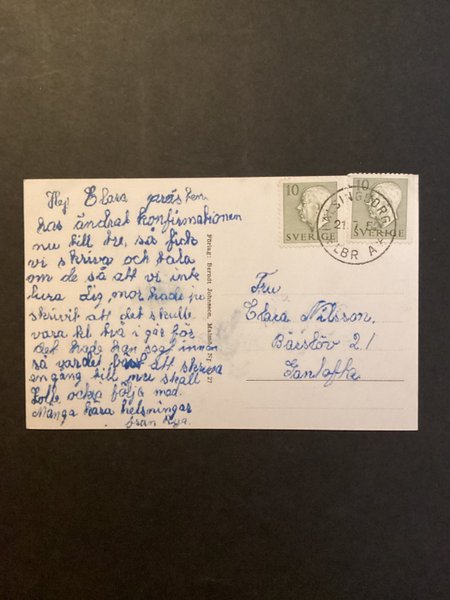 Hej Clara prästen
har ändrat konfirmationen
nu till tre, så fick
vi skriva och tala
om de så att vi inte
lura dig, mor hade ju
skrivit att det skulle
vara kl två i går hos
det hade han sagt innan
så var det bäst att skriva
en gång till nu skall
också följa med.
Många kära hälsningar
från
Förlag: Berndt Johnsson, Malmö
10
SVERIGE
10
SVERIGE
HÄLSINGBORG
21. 7. 5
LBR A
Fru
Clara Nilsson,
Bårslöv 21
Gantofta